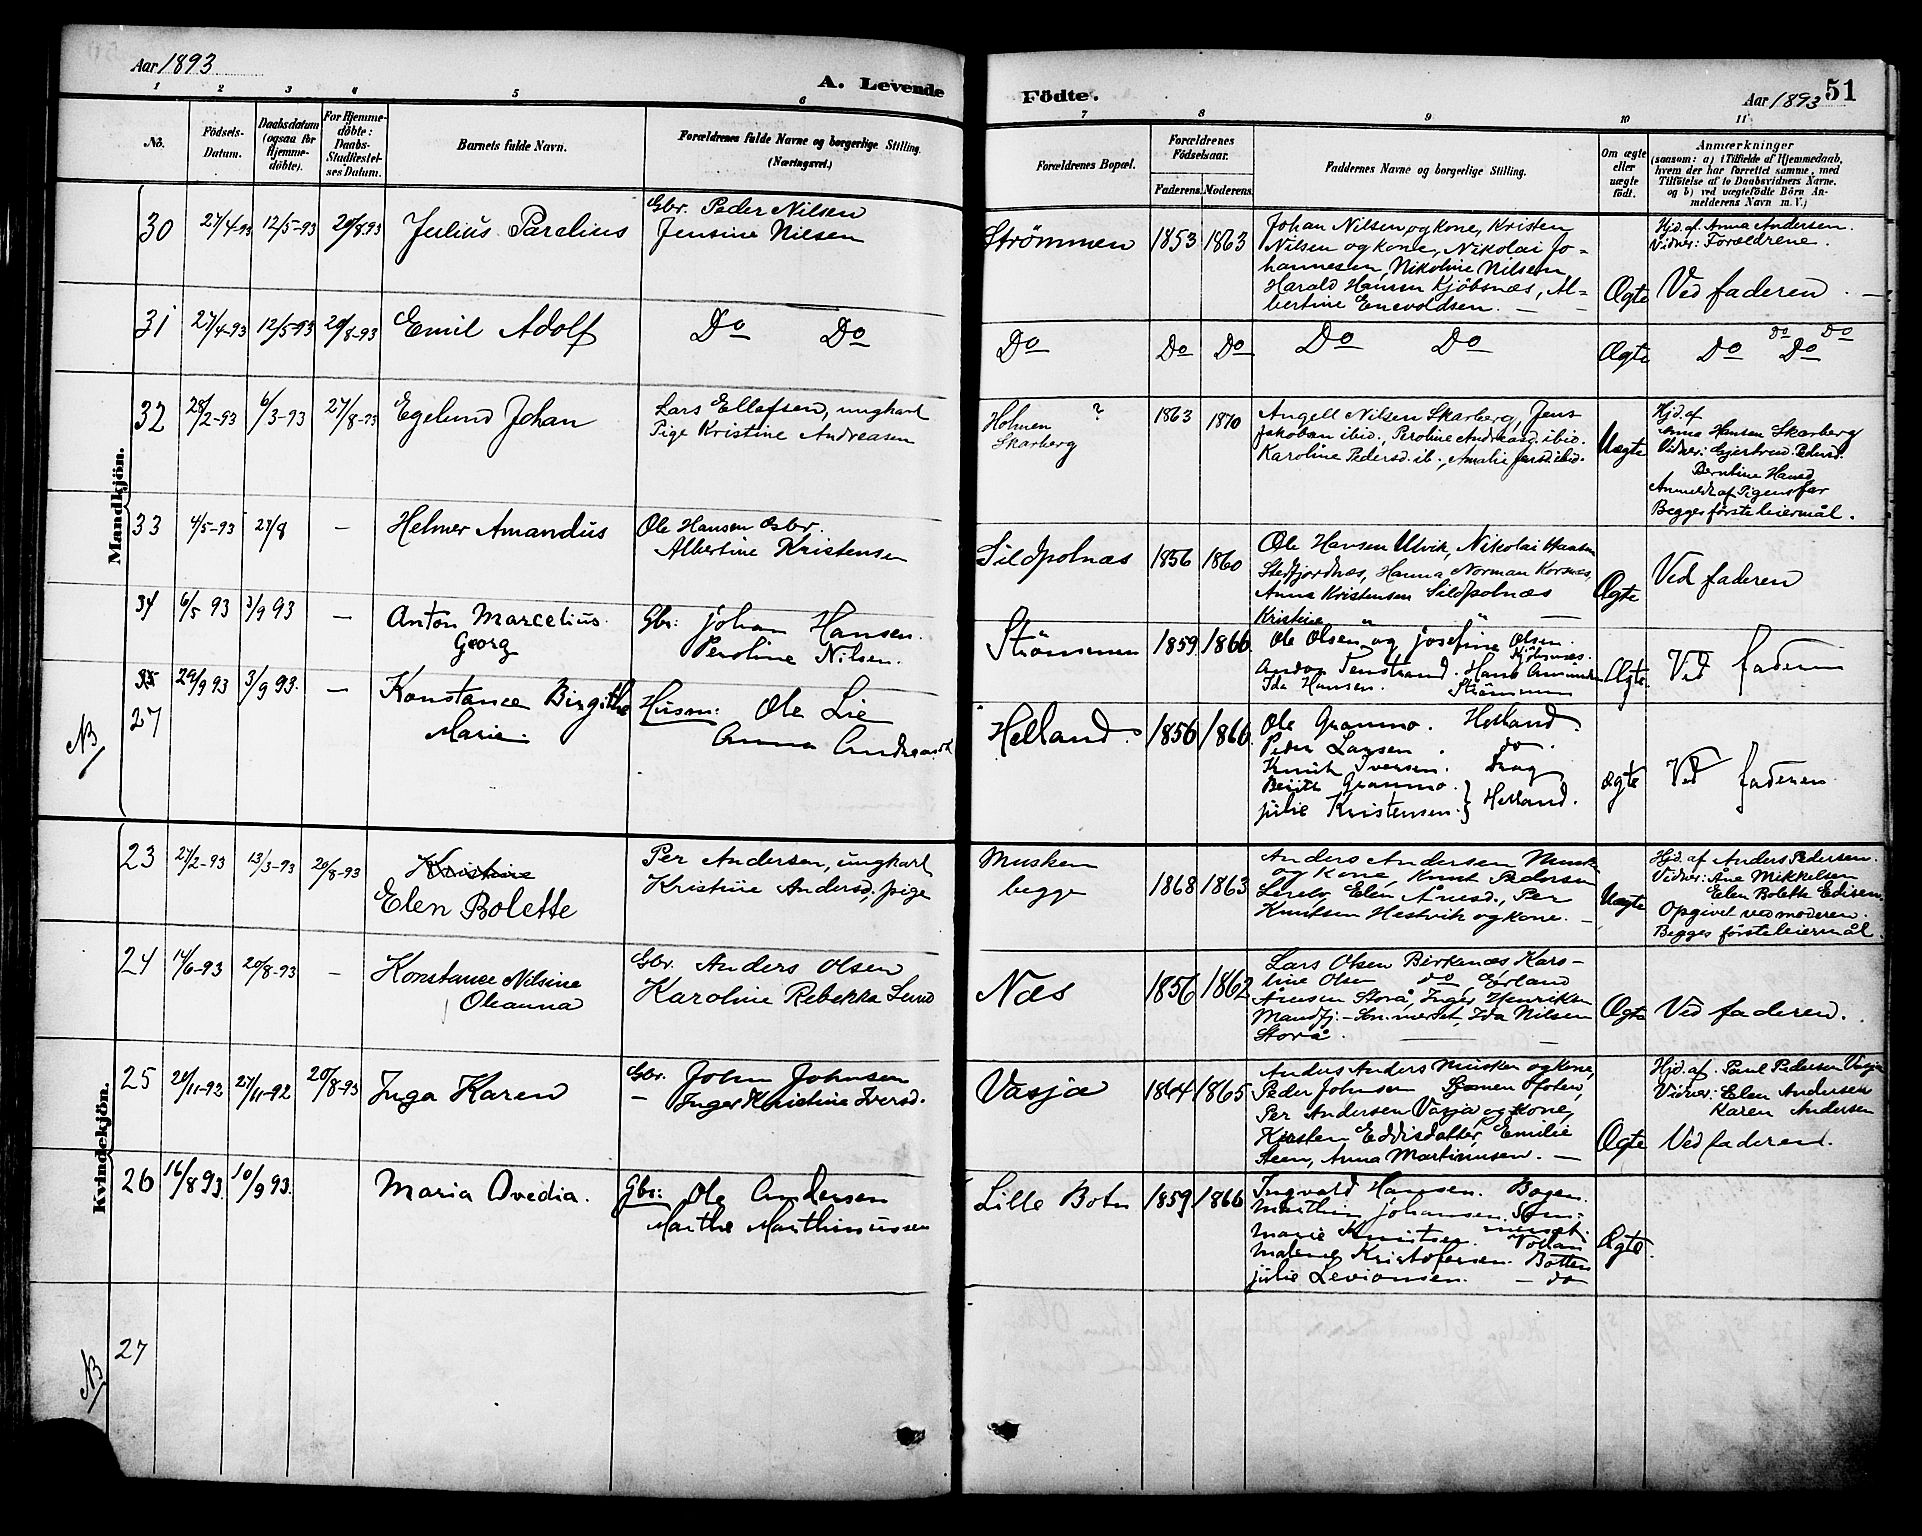 Aar 1893
A. Levende
Födte.
Aar 1893 51
1 2 3 4 5 6 7 8 9 10 11
No.
Födsels-
Datum.
Daabsdatum
(ogsaa for
Hjemme-
döbte).
For Hjemme-
döbte:
Daabs-
Stadfæstel-
ses Datum.
Barnets fulde Navn.
Forældrenes fulde Navne og borgerlige Stilling.
(Næringsvei.)
Forældrenes Bopæl.
Forældrenes
Födselsaar.
Faderens. Moderens.
Faddernes Navne og borgerlige Stilling.
Om ægte
eller
uægte
födt.
Anmærkninger
(saasom: a) i Tilfælde af Hjemmedaab,
hvem der har forrettet samme, med
Tilföielse af to Daabsvidners Navne,
og b) ved uægtefödte Börn An-
melderens Navn m. V.)
Mandkjön.
30 27/4-93 12/5-93 20/8.93 Julius Parelius
Gbr. Peder Nilsen
Jensine Nilsen
Strömmen 1853 1863
Johan Nilsen og kone, Kristen
Nilsen og kone, Nikolai Jo-
hannesen, Nikoline Nilsen
Harald Hansen Kjöbsnæs, Al-
bertine Enevoldsen. —
Ægte
Hjd. af Anna Andersen.
Vidner: Forældrene.
Ved faderen. —
31 27/4-93 12/5-93 20/8-93 Emil Adolf
Do Do
Do Do Do
Do Do
Ægte
Do Do
Do Do
32 28/2-93 6/3-93 27/8-93 Egelund Johan
Lars Ellefsen, ungkarl
Pige Kristine Andreasen
Holmen ?
Skarberg
1863 1870
Angell Nilsen Skarberg, Jens
Jakobsen ibid., Peroline Andreasd. ibid.
Karoline Pedersd. ib., Amalie ibid.
Uægte
Hjd. af
Anna Hansen Skarberg
Vidner:
Berntine Hansd
Anmeldt af Pigens far
Begges förste leiermål.
33 4/5-93 27/8 — Helmer Amandus
Ole Hansen Gbr.
Albertine Kristensen
Sildpolnæs 1856 1860
Ole Hansen Ulvik, Nikolai Hansen
Stedfjordnæs, Hanna Norman Korsnæs,
Anna Kristensen Sildpolnæs
Kristine " "
Ægte
Ved faderen
34 6/5 93 3/9 93 — Anton Marcelius
Georg
Gbr: Johan Hansen.
Peroline Nilsen.
Strömmen 1859 1866
Ole Olsen og Josefine Olsen.
Kjöbsnæs.
Andor Tenstrand. Hans Amundsen
Ida Hansen. Strömmen
Ægte.
Ved faderen
NB
35 29/9 93 3/9 93. — Konstance Birgithe
27
Marie.
Husm: Ole Lie
Anna Andreasd
Helland. 1856 1866.
Ole Grammo. Helland.
Peder Larsen. do.
Knut Iversen. Drag
Berith Grammo. } Helland.
Julie Kristensen.
ægte
Ved faderen
Kvindekjön.
23 27/2-93 13/3-93 20/8-93 Kristine
Elen Bolette
Per Andersen, ungkarl
Kristine Andersd., pige
Musken
begge
1868 1863
Anders Andersen Musk
og kone, Knut Pedersen
Elen Årsesd., Per
Knutsen Hestvik og kone. —
Uægte
Hjd. af Anders Pedersen.
Vidner: Åne Mikkelsen
Elen Bolette Edisen.
Opgivet ved moderen.
Begges förste leiermål.
24 14/6-93 20/8-93 — Konstance Nilsine
Oleanna
Gbr. Anders Olsen
Karoline Rebekka Lund
Næs 1856 1862
Lars Olsen Birkenæs Karo-
line Olsen do, Erland
Arnesen Storå, Inger Henriksen
Mandfj.- Ida Nilsen
Storå. —
Ægte
Ved faderen.
25 20/11-92 27/11-92 20/8-93 Inga Karen
Gbr. John Johnsen
— Inger Kristine Iversd.
Vasja 1864 1865
Anders Anders Musken og kone,
Peder Johnsen Ofoten,
Per Andersen Vasja og kone,
Kirsten Eddisdatter, Emilie
Steen, Anna Martinusen. —
Ægte
Hjd. af. Paul Pedersen Vasja
Vidner: Elen Andersen
Karen Andersen
Ved faderen.
26 16/8 93. 10/9 93. Maria Ovedia.
Gbr: Ole Andersen
Marthe Marthinussen
Lille Botn 1859 1866
Ingvald Hansen. Bogen.
Marthin Johansen. Som-
merset.
Marie Knutsen.
Malene Kristofersen. Botten
Julie Levionsen. — do
Ægte.
NB
27